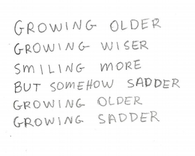 GROWING OLDER
GROWING WISER
SMILING MORE
BUT SOMEHOW SADDER
GROWING OLDER
GROWING SADDER